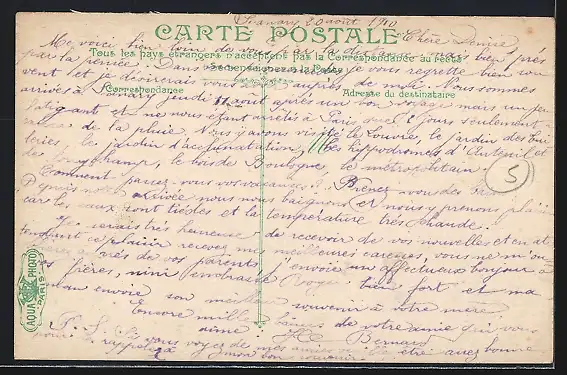 Sanary 20 août 1910
CARTE POSTALE
Chère Denise
Me voici bien loin de vous par la distance mais bien près
Tous les pays étrangers n'acceptent pas la Correspondance au recto
par la pensée. Dans je vous regrette bien sou
Se renseigner à la Poste
vent et je désirerais vous auprès de moi. Nous sommes
Correspondance
Adresse du destinataire
arrivés à Sanary jeudi 11 août après un bon voyage mais un peu
fatigant et ne nous étant arrêtés à Paris que 2 jours seulement
de la pluie. Nous avons visité le Louvre, le jardin des Tui
leries, le jardin d'acclimatation, les hippodromes d'Auteuil et
de Longchamp, le bois de Boulogne, le métropolitain
Comment passez-vous vos vacances? Prenez-vous des bains
Depuis notre arrivée nous nous baignons et nous y prenons plaisir
car les eaux sont tièdes et la température très chaude.
Je serais très heureuse de recevoir de vos nouvelles et en at
tendant ce plaisir recevez mes meilleures caresses, vous ne m'ou
près de vos parents j'envoie un affectueux bonjour à
frères, mini embrasse Roger bien fort et ma
envoie son meilleur souvenir à votre mère.
Encore mille baisers de votre amie qui vous
aime. Bernard
P.S. Si vous voyez de mes amies être assez bonne
pour me rappeler à mon bon souvenir.
5
AQUA PHOTO
PARIS